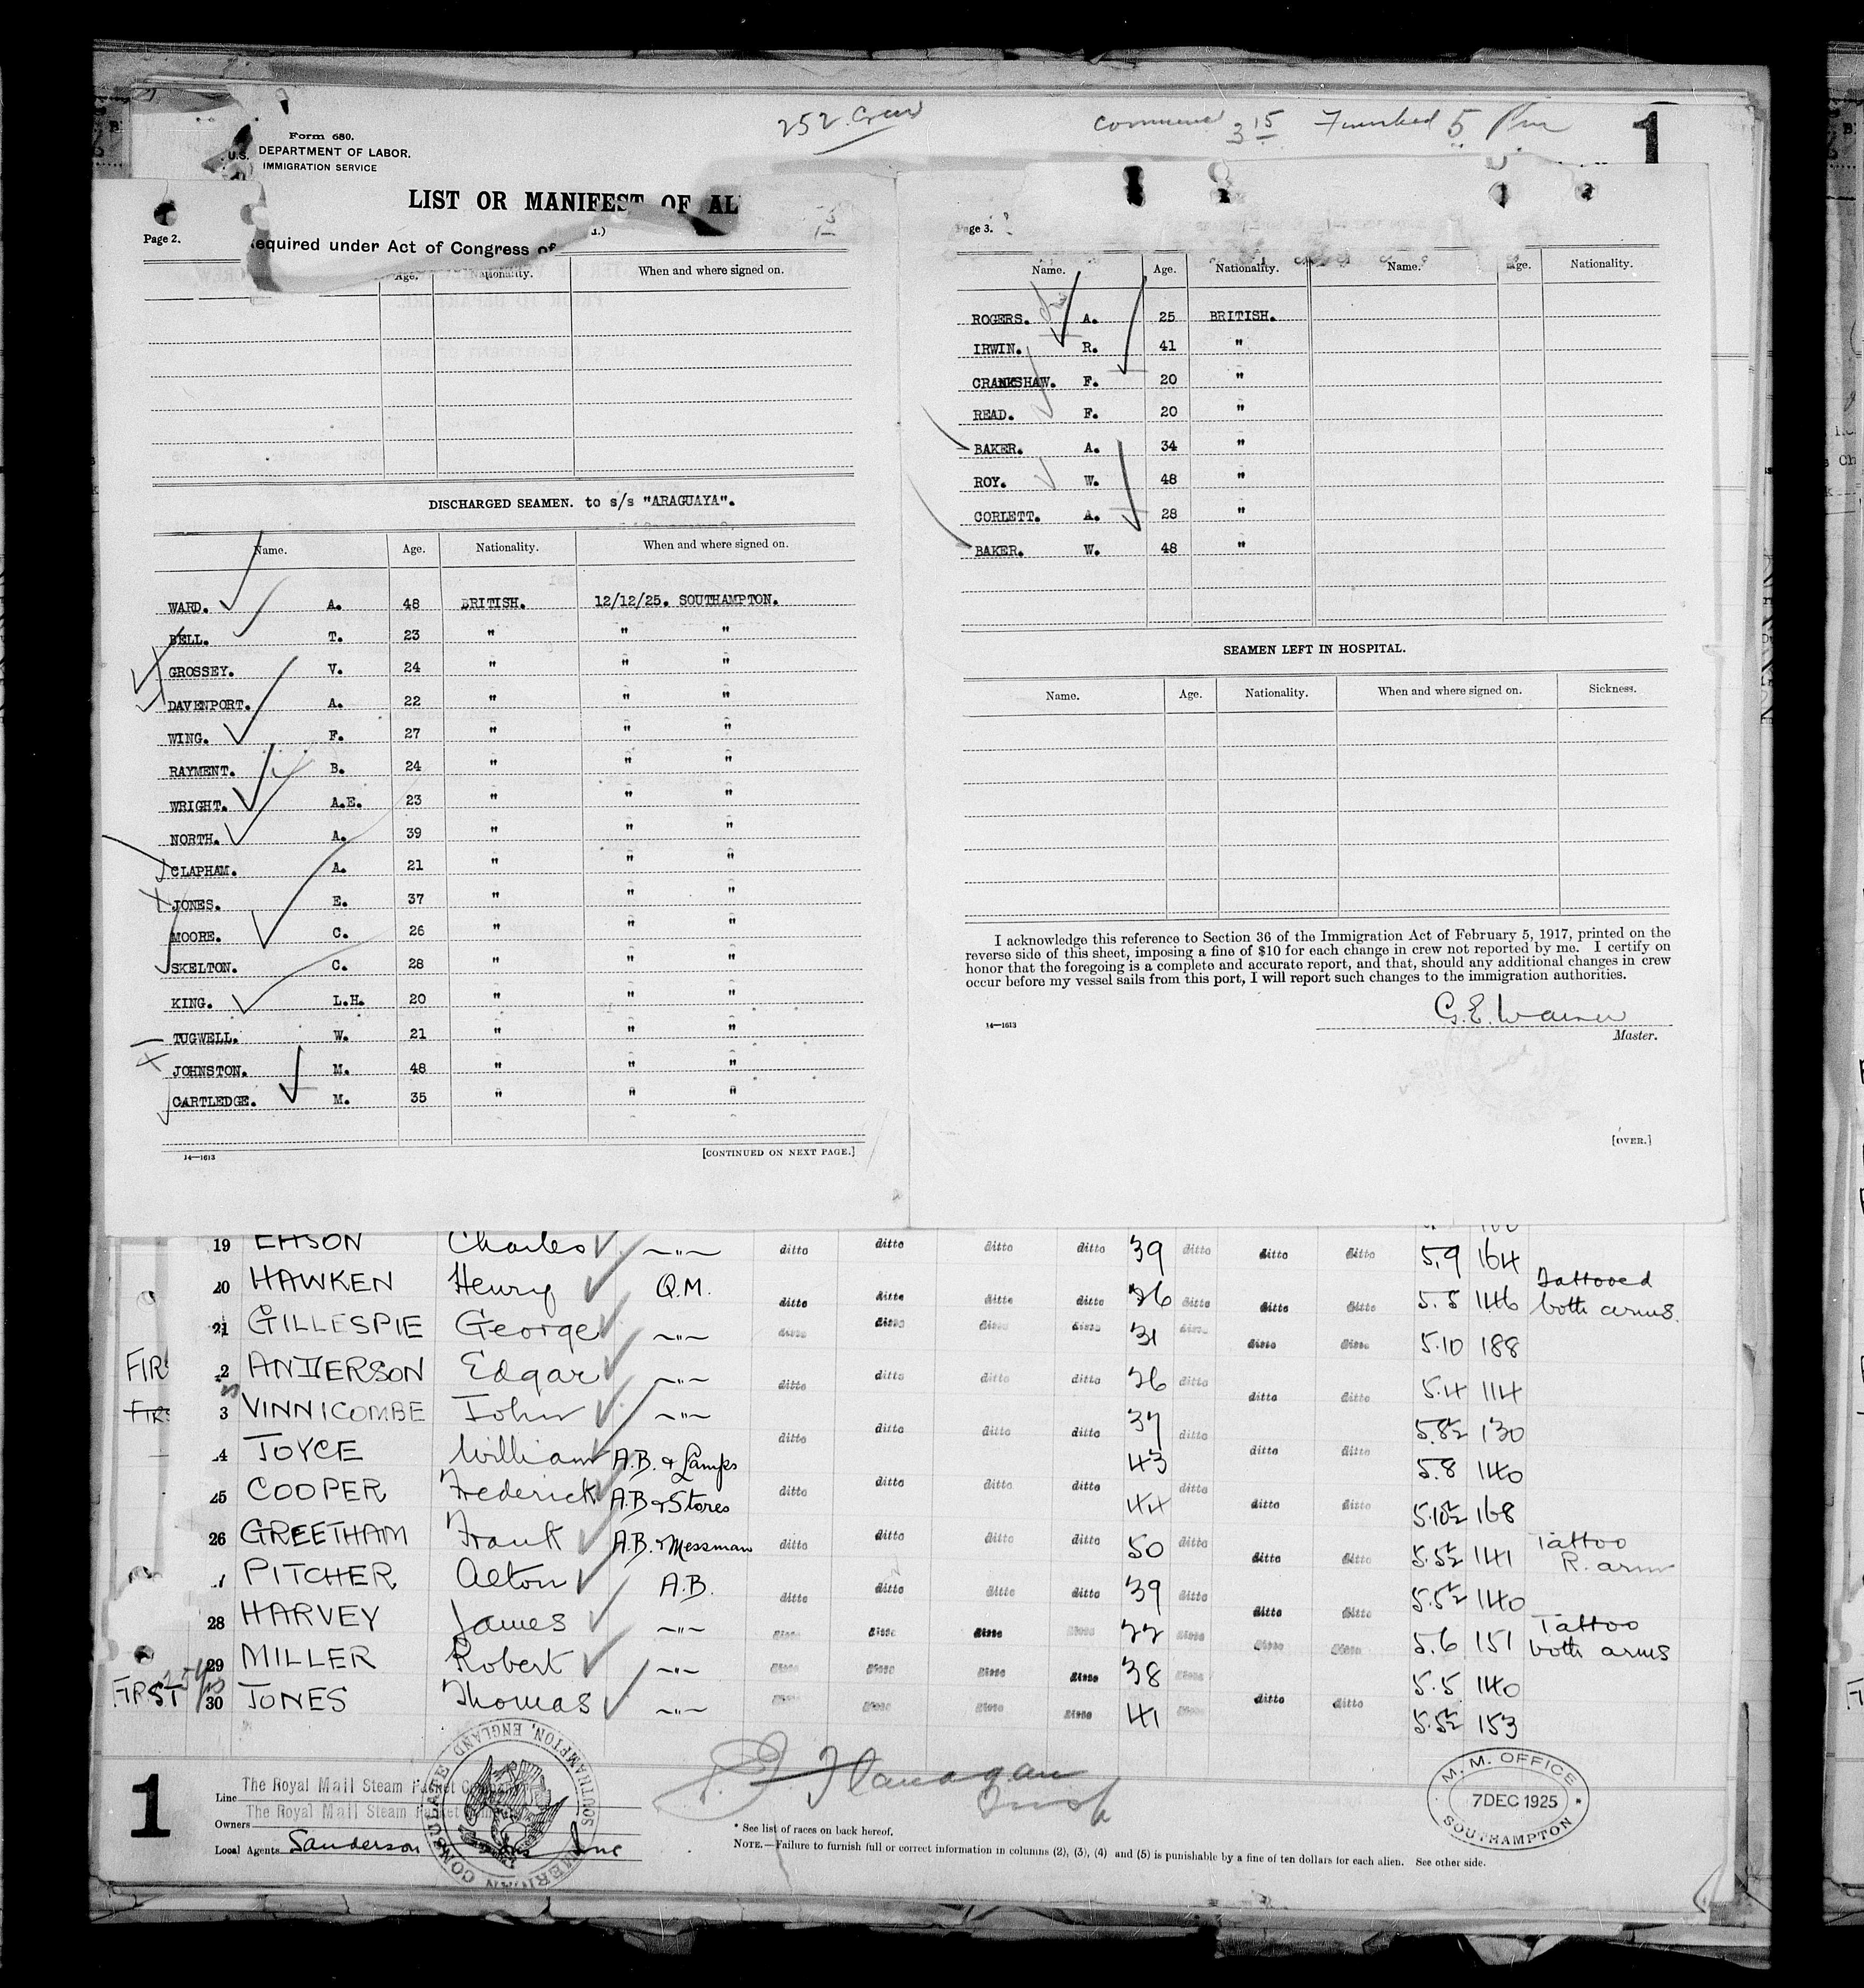 252 Crew
3 15 5 Pm
1
Form 680.
U.S. DEPARTMENT OF LABOR.
IMMIGRATION SERVICE
LIST OR MANIFEST OF AL
equired under Act of Congress of
Page 2.
Age. Nationality. When and where signed on.
DISCHARGED SEAMEN. to s/s "ARAGUAYA".
Name. Age. Nationality. When and where signed on.
WARD. A. 48 BRITISH. 12/12/25. SOUTHAMPTON.
BELL. T. 23 " " "
GROSSEY. V. 24 " " "
DAVENPORT. A. 22 " " "
WING. F. 27 " " "
RAYMENT. B. 24 " " "
WRIGHT. A.E. 23 " " "
NORTH. A. 39 " " "
CLAPHAM. A. 21 " " "
JONES. E. 37 " " "
MOORE. C. 26 " " "
SKELTON. C. 28 " " "
KING. L.H. 20 " " "
TUGWELL. W. 21 " " "
JOHNSTON. M. 48 " " "
CARTLEDGE. M. 35 " " "
14—1613 [CONTINUED ON NEXT PAGE.]
Page 3.
Name. Age. Nationality. Name. Age. Nationality.
ROGERS. A. 25 BRITISH.
IRWIN. R. 41 "
CRANKSHAW. F. 20 "
READ. F. 20 "
BAKER. A. 34 "
ROY. W. 48 "
CORLETT. A. 28 "
BAKER. W. 48 "
SEAMEN LEFT IN HOSPITAL.
Name. Age. Nationality. When and where signed on. Sickness.
I acknowledge this reference to Section 36 of the Immigration Act of February 5, 1917, printed on the
reverse side of this sheet, imposing a fine of $10 for each change in crew not reported by me. I certify on
honor that the foregoing is a complete and accurate report, and that, should any additional changes in crew
occur before my vessel sails from this port, I will report such changes to the immigration authorities.
G.E. Warner
14—1613 Master.
[OVER.]
19 EASON Charles —"— ditto ditto ditto ditto 39 ditto ditto ditto 5.9 164
20 HAWKEN Henry Q.M. ditto ditto ditto ditto 26 ditto ditto ditto 5.8 146 Tattooed both arms.
21 GILLESPIE George —"— ditto ditto ditto ditto 31 ditto ditto ditto 5.10 188
FIRS 2 ANDERSON Edgar —"— ditto ditto ditto ditto 26 ditto ditto ditto 5.4 114
FIRS 3 VINNICOMBE John —"— ditto ditto ditto ditto 37 ditto ditto ditto 5.8½ 130
4 JOYCE William A.B. & Lamps 43 5.8 140
25 COOPER Frederick A.B & Stores ditto ditto ditto ditto 44 ditto ditto ditto 5.10½ 168
26 GREETHAM Frank A.B. & Messman ditto ditto ditto ditto 50 ditto ditto ditto 5.5½ 141 Tattoo R. arm
PITCHER Alton A.B. ditto ditto ditto ditto 39 ditto ditto ditto 5.5½ 140
28 HARVEY James —"— ditto ditto ditto ditto 22 ditto ditto ditto 5.6 151 Tattoo both arms
29 MILLER Robert —"— ditto ditto ditto ditto 38 ditto 5.5 140
FIRST 30 JONES Thomas —"— ditto ditto ditto ditto 41 ditto ditto ditto 5.5½ 153
1
Line The Royal Mail Steam Packet Company
Owners The Royal Mail Steam Packet
Local Agents Sanderson Inc
AMERICAN CONSULATE SOUTHAMPTON, ENGLAND
Flanagan
* See list of races on back hereof.
NOTE.—Failure to furnish full or correct information in columns (2), (3), (4) and (5) is punishable by a fine of ten dollars for each alien. See other side.
M. M. OFFICE
7 DEC 1925
SOUTHAMPTON